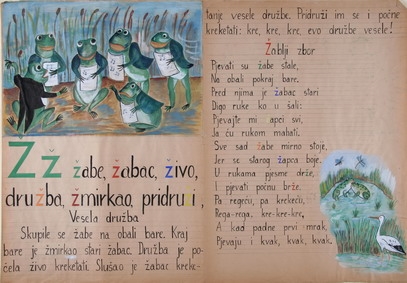 Ž ž žabe, žabac, živo,
družba, žmirkao, pridruži,
Vesela družba
Skupile se žabe na obali bare. Kraj
bare je žmirkao stari žabac. Družba je po-
čela živo kreketati. Slušao je žabac kreke-
tanje vesele družbe. Pridruži im se i počne
kreketati: kre, kre, kre, evo družbe vesele!
Žablji zbor
Pjevati su žabe stale,
Na obali pokraj bare.
Pred njima je žabac stari
Digo ruke ko u šali:
Pjevajte mi apci svi,
Ja ću rukom mahati.
Sve sad žabe mirno stoje,
Jer se starog žapca boje.
U rukama pjesme drže,
I pjevati počnu brže.
Pa regeću, pa krekeću,
Rega-rega, kre-kre-kre,
A kad padne prvi mrak,
Pjevaju i kvak, kvak, kvak.